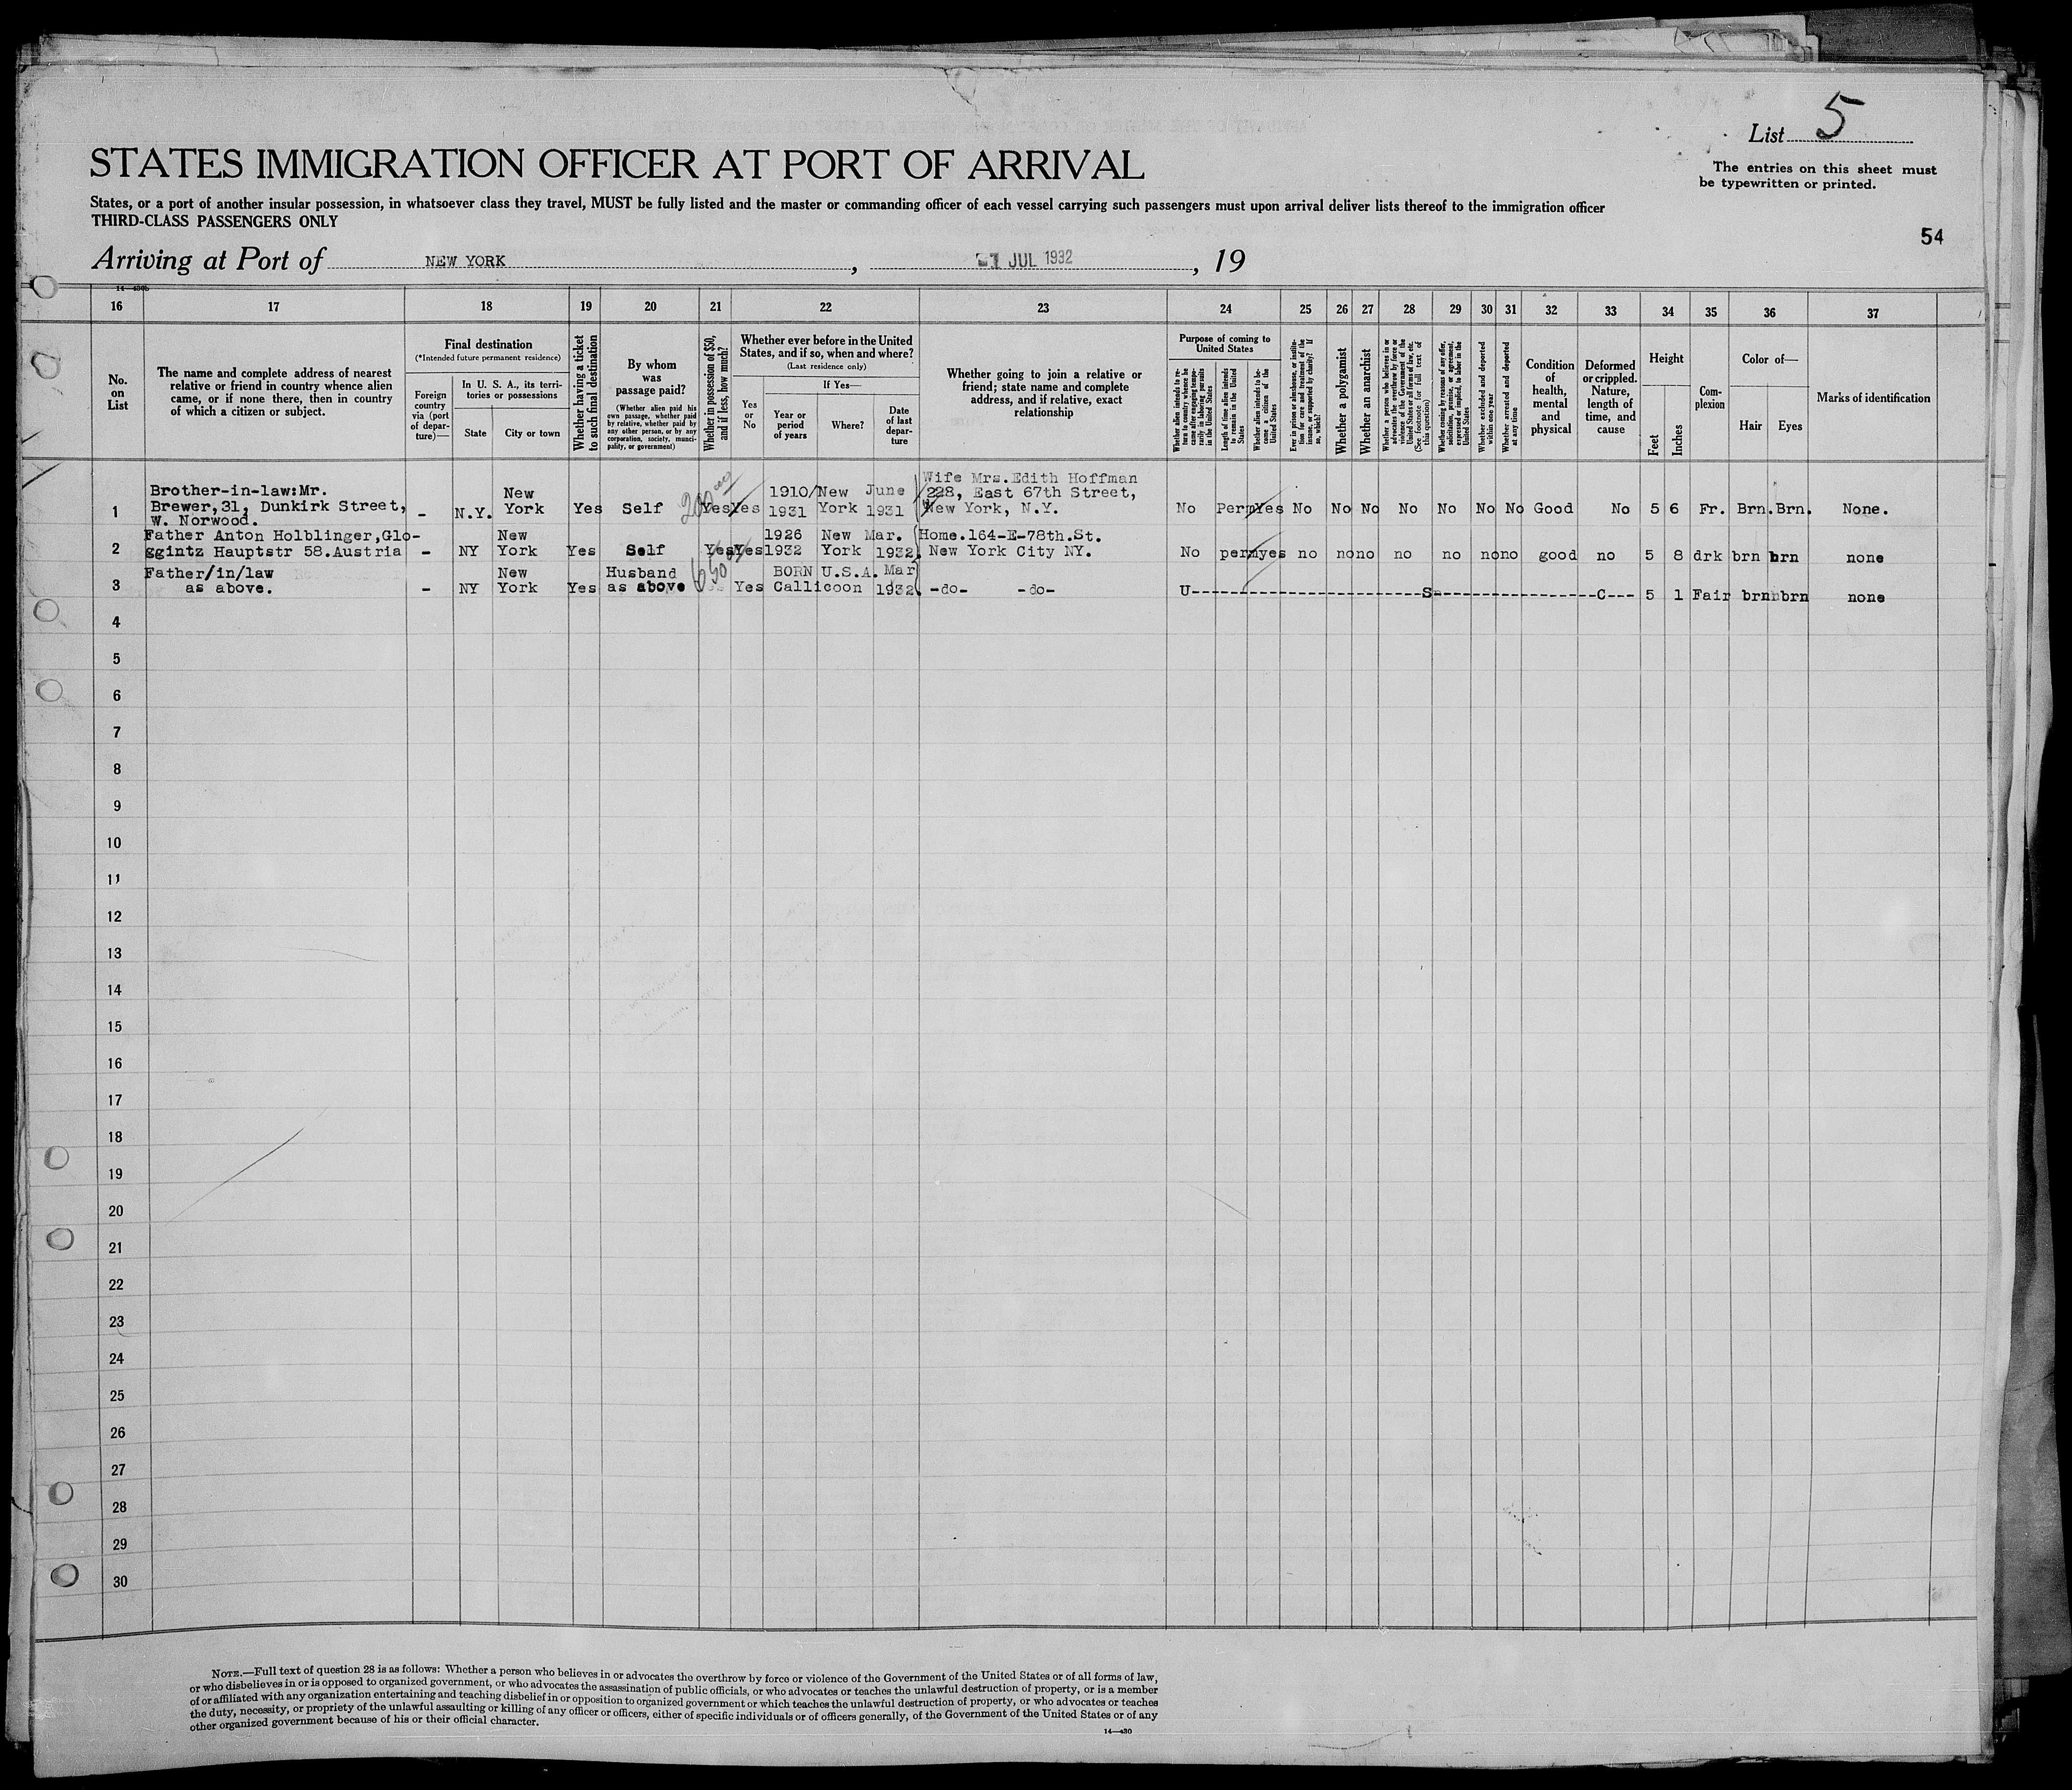 List 5
STATES IMMIGRATION OFFICER AT PORT OF ARRIVAL
The entries on this sheet must
be typewritten or printed.
States, or a port of another insular possession, in whatsoever class they travel, MUST be fully listed and the master or commanding officer of each vessel carrying such passengers must upon arrival deliver lists thereof to the immigration officer
THIRD-CLASS PASSENGERS ONLY
54
Arriving at Port of NEW YORK, JUL 1932, 19
16 17 18 19 20 21 22 23 24 25 26 27 28 29 30 31 32 33 34 35 36 37
No.
on
List
The name and complete address of nearest
relative or friend in country whence alien
came, or if none there, then in country
of which a citizen or subject.
Final destination
(*Intended future permanent residence)
Foreign
country
via (port
of depar-
ture)—
In U. S. A., its terri-
tories or possessions
State
City or town
Whether having a ticket
to such final destination
By whom
was
passage paid?
(Whether alien paid his
own passage, whether paid
by relative, whether paid by
any other person, or by any
corporation, society, munici-
pality, or government)
Whether in possession of $50,
and if less, how much?
Whether ever before in the United
States, and if so, when and where?
(Last residence only)
Yes
or
No
If Yes—
Year or
period
of years
Where?
Date
of last
depar-
ture
Whether going to join a relative or
friend; state name and complete
address, and if relative, exact
relationship
Purpose of coming to
United States
Whether alien intends to re-
turn to country whence he
came after engaging tempo-
rarily in laboring pursuits
in the United States
Length of time alien intends
to remain in the United
States
Whether alien intends to be-
come a citizen of the
United States
Ever in prison or almshouse, or institu-
tion for care and treatment of the
insane, or supported by charity? If
so, which?
Whether a polygamist
Whether an anarchist
Whether a person who believes in or
advocates the overthrow by force or
violence of the Government of the
United States or all forms of law, etc.
(See footnote for full text of
this question)
Whether coming by reasons of any offer,
solicitation, promise, or agreement,
expressed or implied, to labor in the
United States
Whether excluded and deported
within one year
Whether arrested and deported
at any time
Condition
of
health,
mental
and
physical
Deformed
or crippled.
Nature,
length of
time, and
cause
Height
Feet
Inches
Com-
plexion
Color of—
Hair
Eyes
Marks of identification
1
Brother-in-law:Mr.
Brewer,31, Dunkirk Street,
W. Norwood.
- N.Y. New
York Yes Self Yes Yes 1910/
1931 New
York June
1931 Wife Mrs.Edith Hoffman
228, East 67th Street,
New York, N.Y.
No Perm Yes No No No No No No No Good No 5 6 Fr. Brn. Brn. None.
2
Father Anton Holblinger,Glo-
ggintz Hauptstr 58.Austria
- NY New
York Yes Self Yes Yes 1926
1932 New
York Mar.
1932. Home.164-E-78th.St.
New York City NY.
No perm yes no no no no no no no good no 5 8 drk brn brn none
3
Father/in/law
as above.
- NY New
York Yes Husband
as above Yes BORN U.S.A.
Callicoon Mar
1932. -do- -do-
U----------S----------C--- 5 1 Fair brn brn none
4
5
6
7
8
9
10
11
12
13
14
15
16
17
18
19
20
21
22
23
24
25
26
27
28
29
30
NOTE.—Full text of question 28 is as follows: Whether a person who believes in or advocates the overthrow by force or violence of the Government of the United States or of all forms of law,
or who disbelieves in or is opposed to organized government, or who advocates the assassination of public officials, or who advocates or teaches the unlawful destruction of property, or is a member
of or affiliated with any organization entertaining and teaching disbelief in or opposition to organized government or which teaches the unlawful destruction of property, or who advocates or teaches
the duty, necessity, or propriety of the unlawful assaulting or killing of any officer or officers, either of specific individuals or of officers generally, of the Government of the United States or of any
other organized government because of his or their official character.
14—430